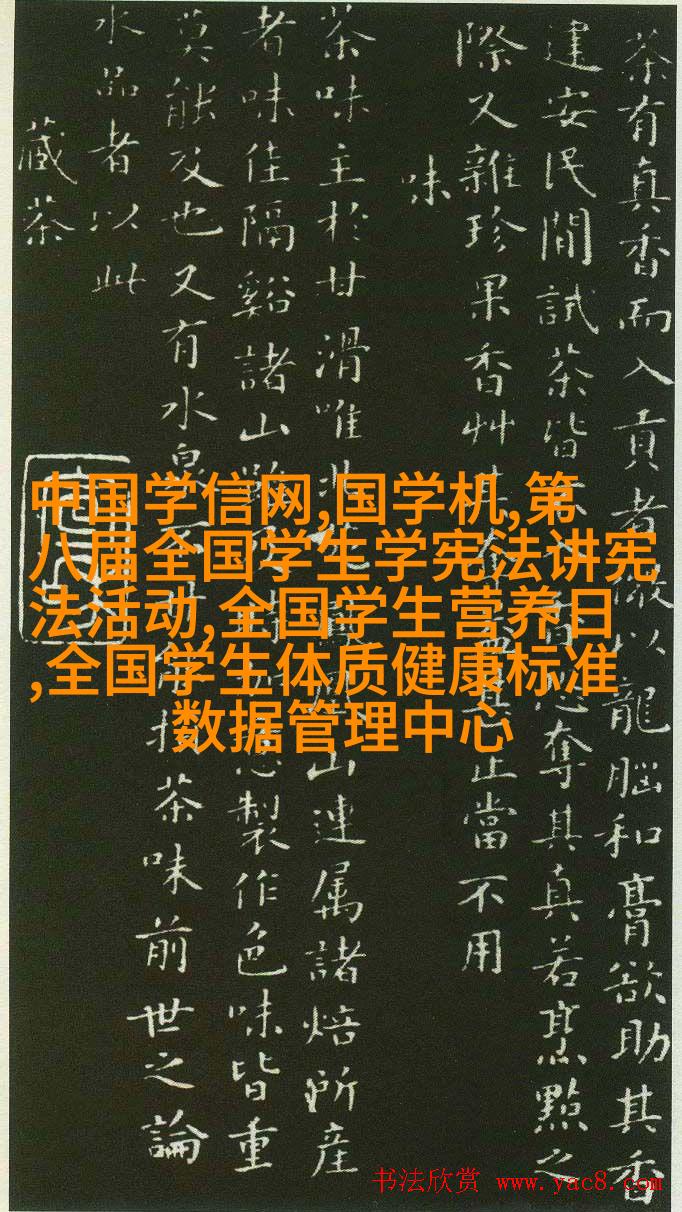 茶有真香而入貢者微以龍腦和膏欲助其香
建安民間試茶皆不入香恐奪其真若烹點之
際又雜珍果香艸其奪益甚正當不用
味
茶味主於甘滑唯北苑山連属諸焙所產
者味佳隔谿諸山雖製作色味皆重
莫能及也又有水泉不甘損茶味前世之論
水品者以此
藏茶
中国学信网,国学机,第
八届全国学生学宪法讲宪
法活动,全国学生营养日
,全国学生体质健康标准
数据管理中心
书法欣赏 www.yac8.com